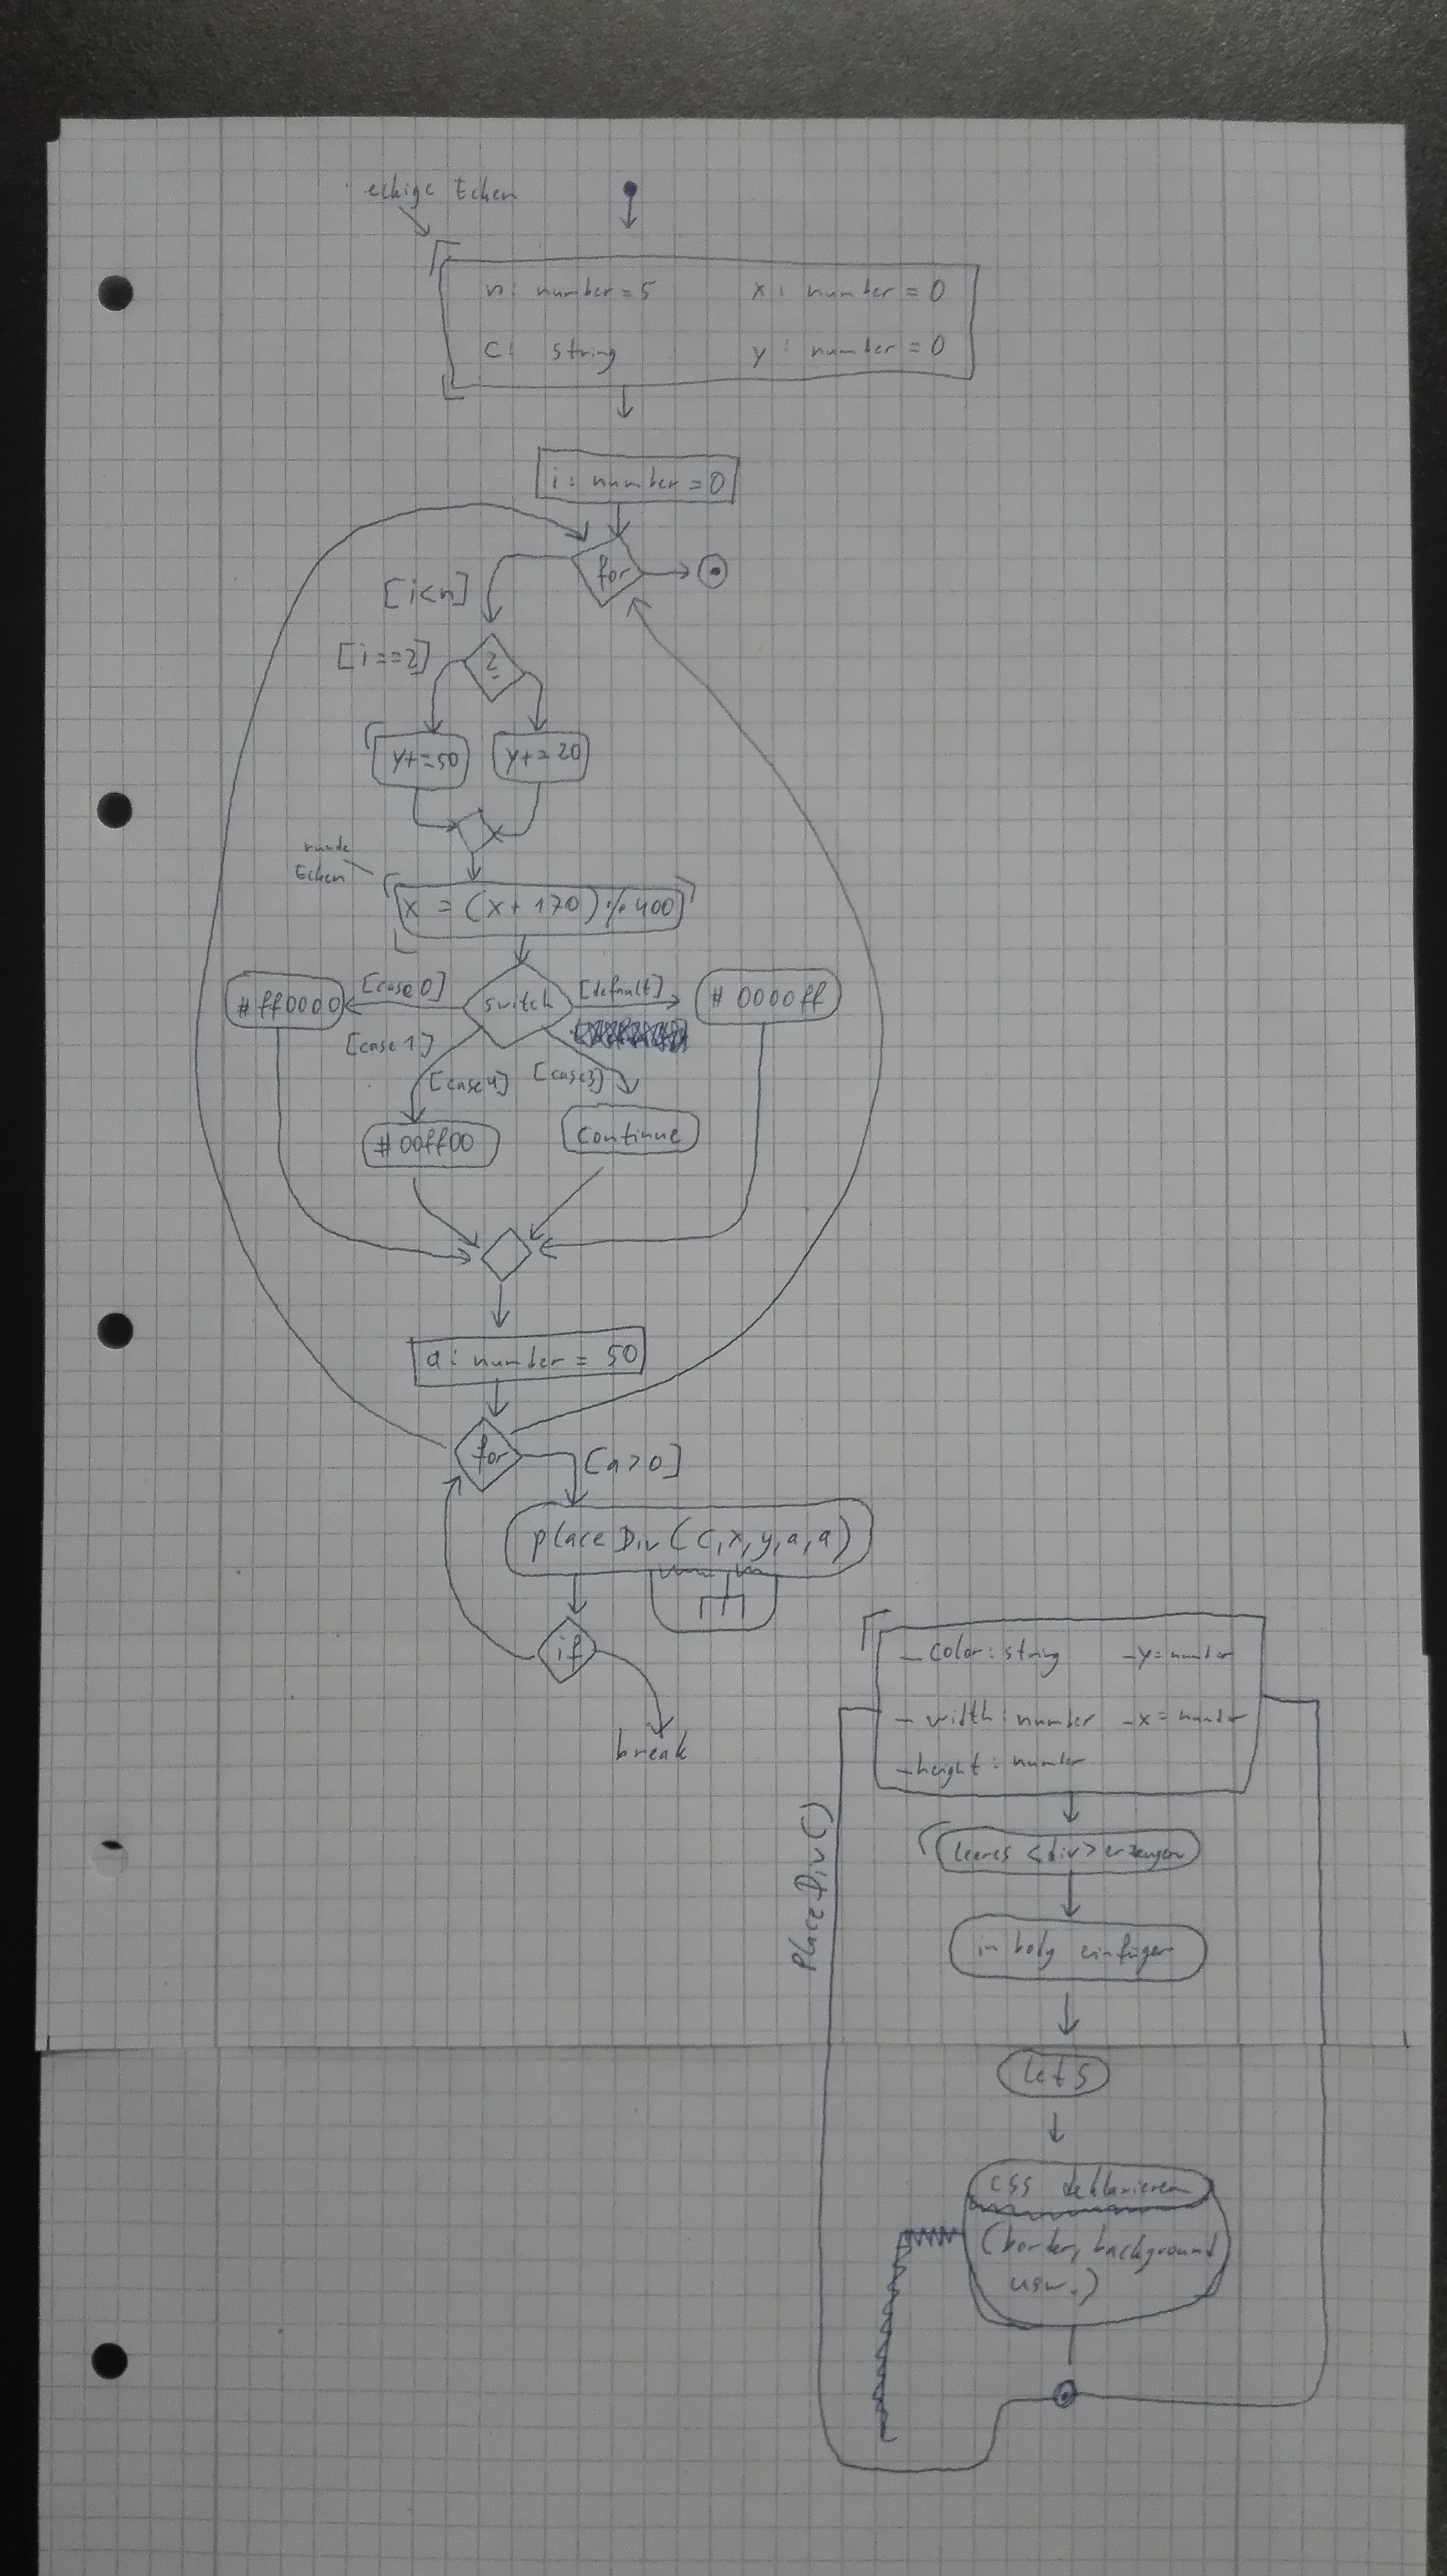 eckige Ecken
n: number = 5 x: number = 0
c: string y: number = 0
i: number = 0
for
[i<n]
[i==2]
?
y+=50 y+=20
runde
Ecken
x = (x+170)%400
#ff0000 [case 0] switch [default] #0000ff
[case 1]
[case 4] [case 3]
#00ff00 continue
a: number = 50
for
[a>0]
placeDiv(c,x,y,a,a)
if
break
PlaceDiv()
- color: string - y = number
- width: number - x = number
- height: number
leeres <div> erzeugen
in body einfügen
let s
css deklarieren
(border, background
usw.)